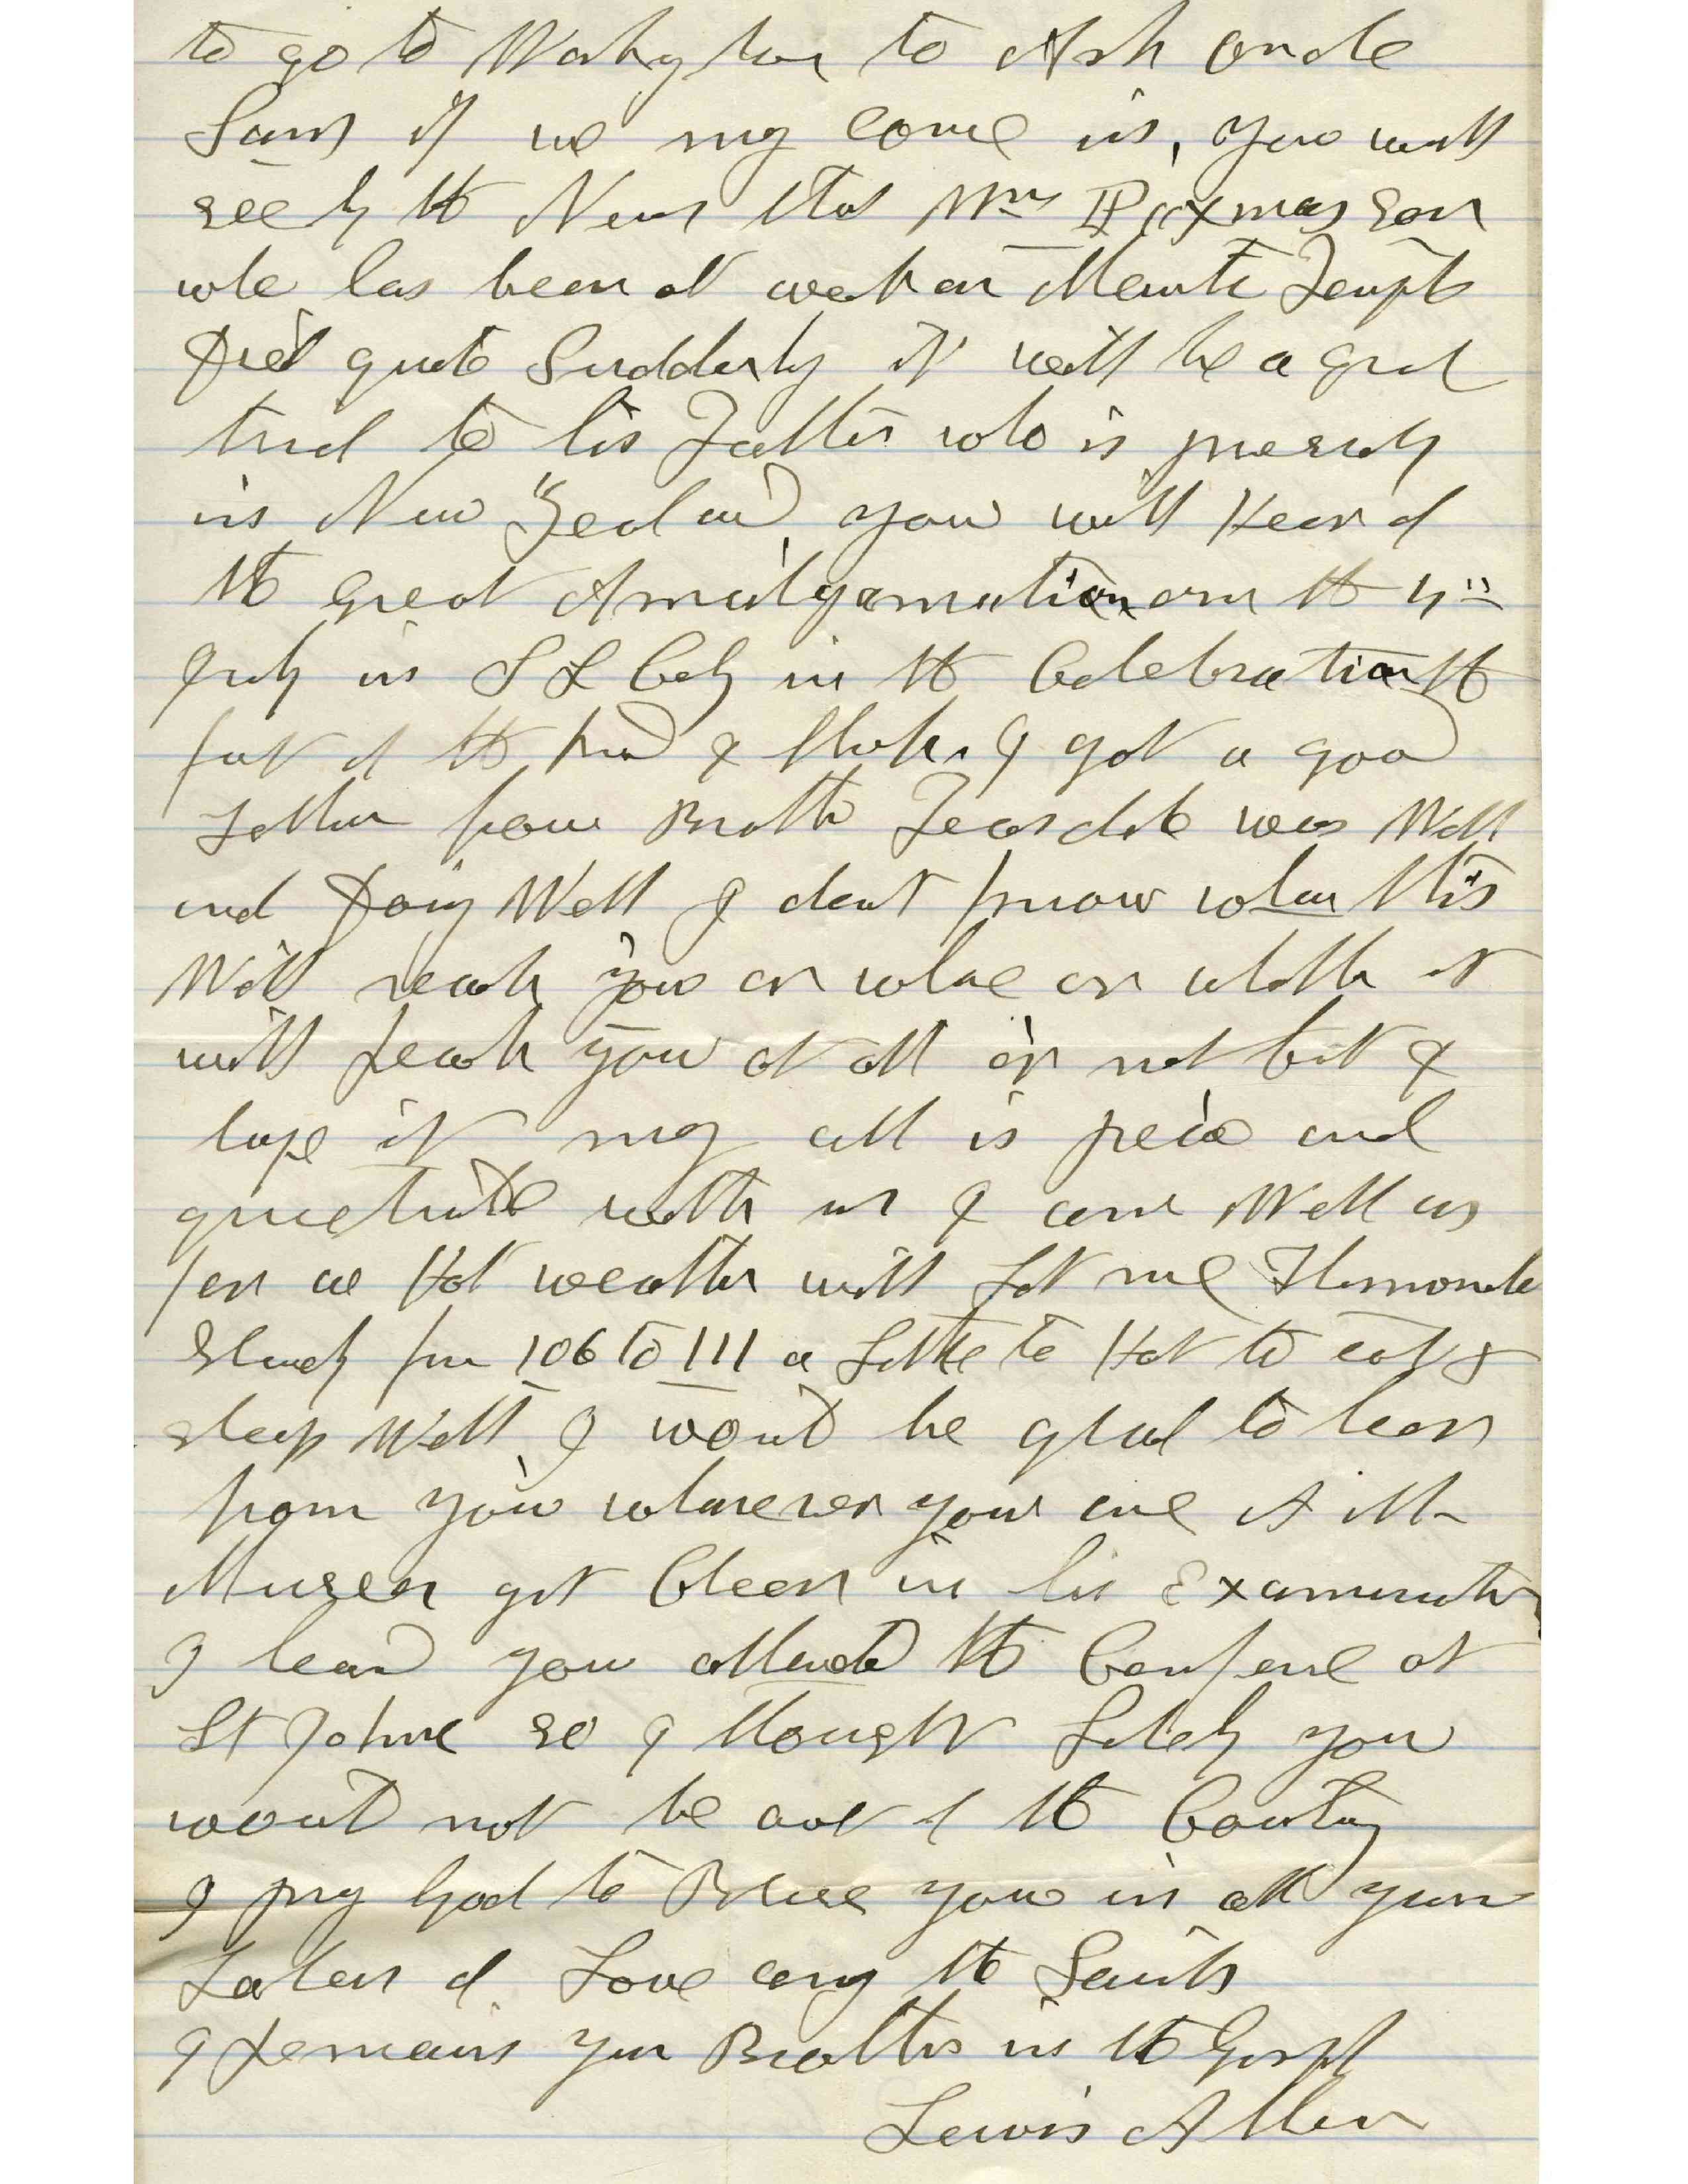 to go to Washgton to Ask oncle
Sam if we my come in, you will
see by the News that Wm Paxmas Son
who has been at work on Manti Templ
Died quite Suddenly it will be a grat
trial to his Father who is presently
in New Zealand, you will Hear of
the great Amalgamation on the 4"
July in S L City in the Celebration the
I got a good
Letter from Brothr Teasdale was Well
and Doing Well I dont know when this
Will reach you or whare or whethr it
will reach you at all or not but I
hope it my all is peice and
quietude with us I am Well as
far as Hot weather will Let me Thermomde
Stands from 106 to 111 a Little to Hot to eat &
sleep Well I would be glad to hear
from you wharever you are A M
Musser got Clear in his Examination
I heard you attended the Confence at
St Johns so I thought Likely you
would not be out of the Country
I pray God to Bless you in all your
Labors of Love among the Saints
I Remain your Brother in the Gospl
Lewis Allen